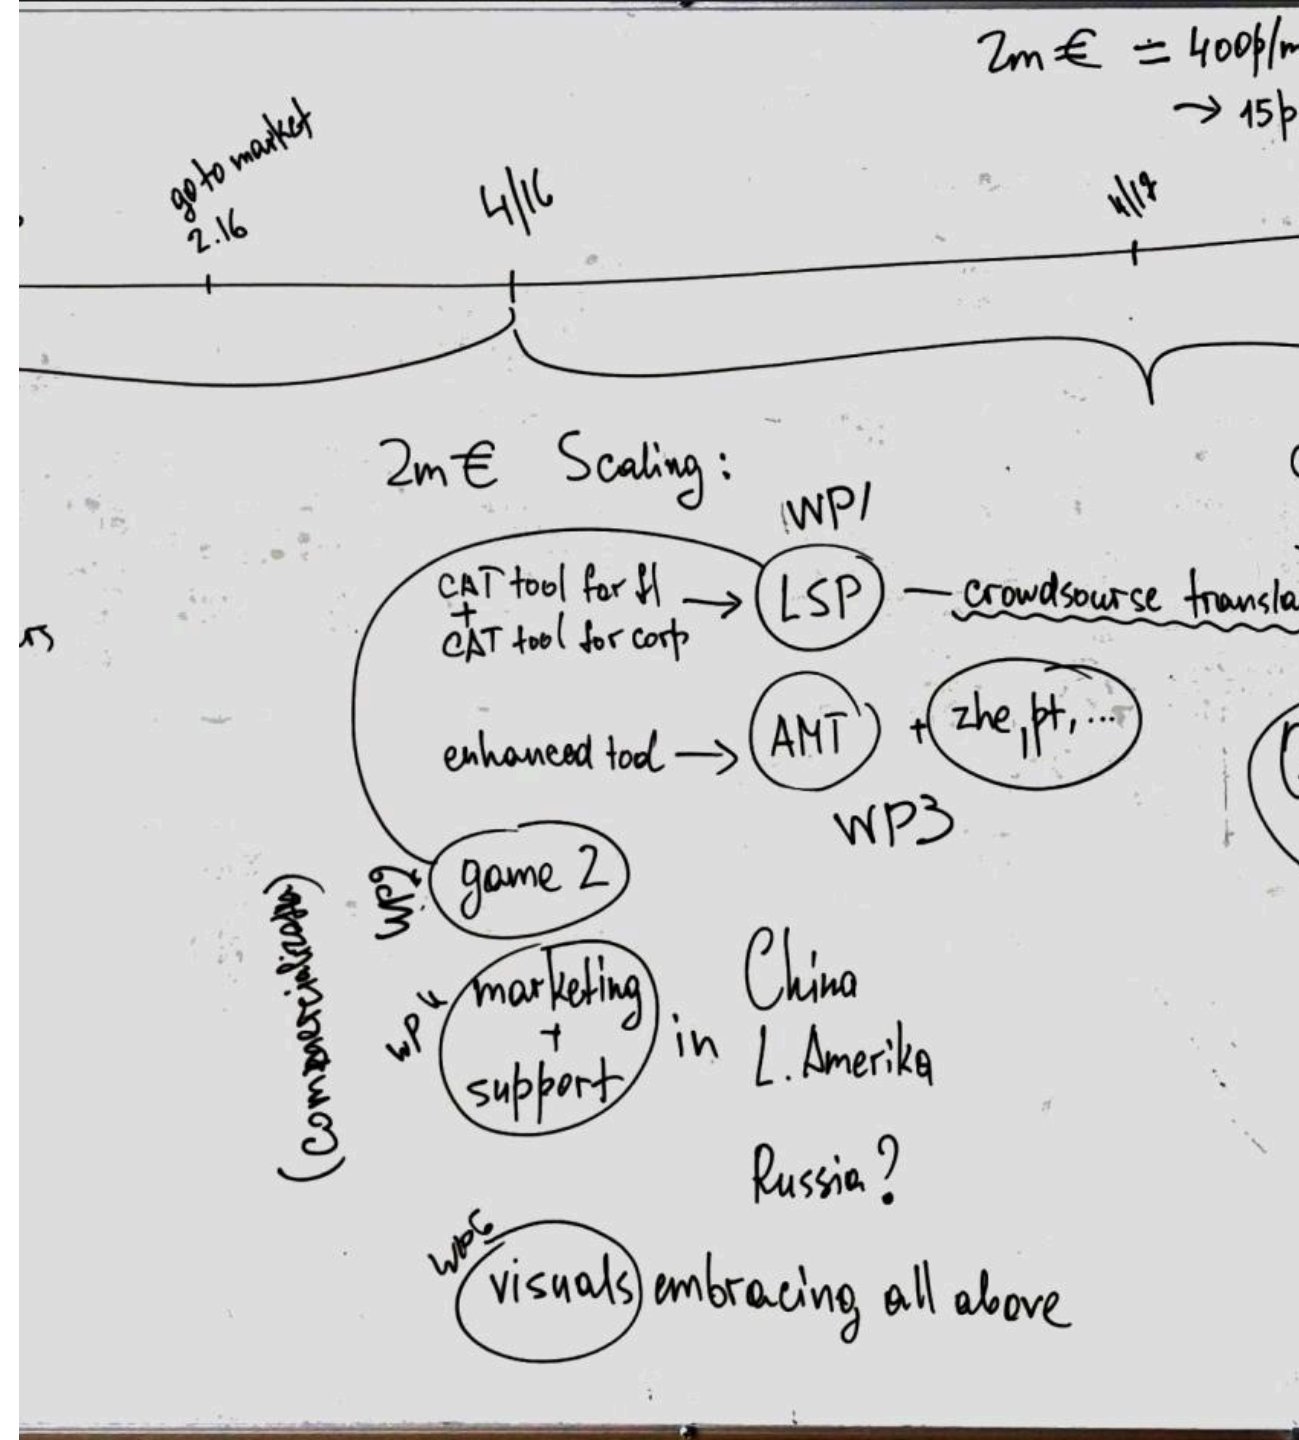 2m€ = 400p/m
→ 15p
go to market
2.16
4/16
4/17
2m€ Scaling:
WP1
CAT tool for fl
+
CAT tool for corp
→ LSP — crowdsourse transla
rs
enhanced tool → AMT + zhe, pt, ...
WP3
WP2
game 2
WP4
marketing
+
support
in
China
L. Amerika
Russia?
WP6
visuals embracing all above